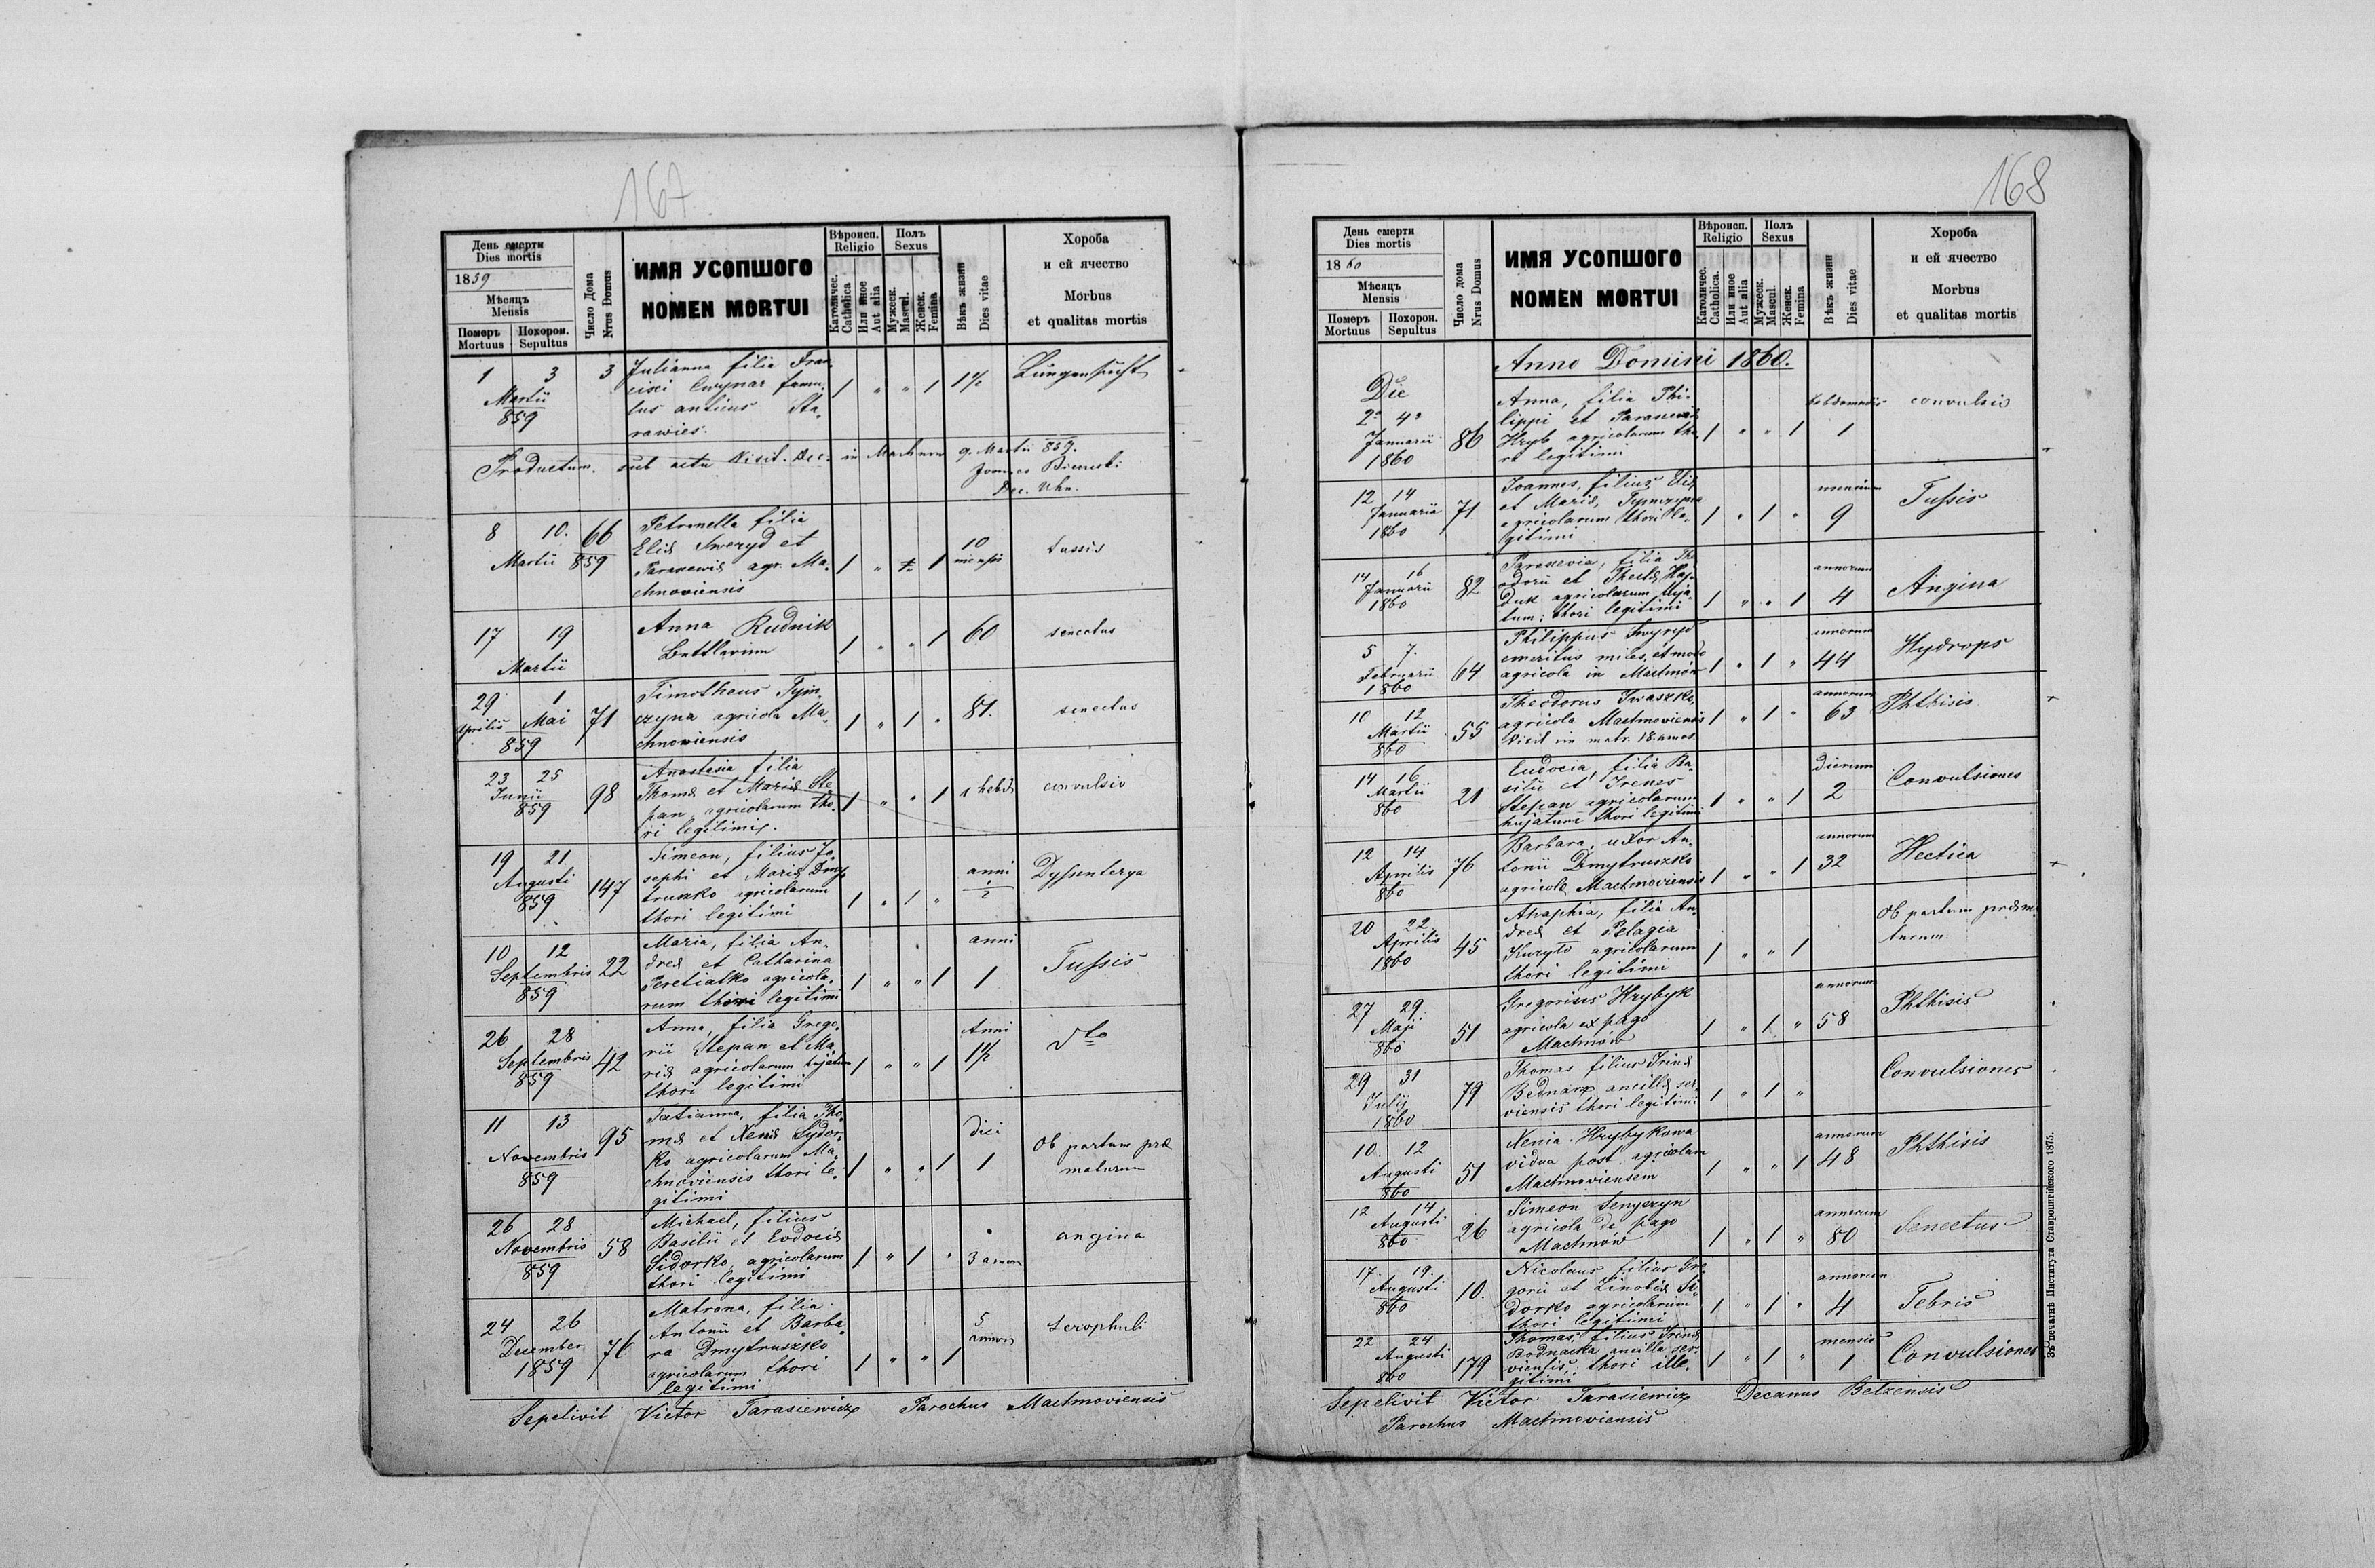 167
День смерти
Dies mortis
1859
Мѣсяцъ
Mensis
Померъ
Mortuus
Похорон.
Sepultus
Число Дома
Nrus Domus
ИМЯ УСОПШОГО
NOMEN MORTUI
Вѣроисп.
Religio
Католичес.
Catholica
Или иное
Aut alia
Полъ
Sexus
Мужеск.
Mascul.
Женск.
Femina
Вѣкъ жизни
Dies vitae
Хороба
и ей ячество
Morbus
et qualitas mortis
1 3 3 Julianna filia Fran-
cisci Cwynar famu-
lus anticus Sta-
rawies.
Martii
859
1 " " 1 1½ Lungensucht
Productum sub actu Visit. Dec. in Machnow 9. Martii 859.
Joannes
Dec. Uhn.
8 10. 66 Petronella filia
Martii 859 Eliæ Sweryd et
Paraxewiæ agr. Ma-
chnoviensis
1 " 1 10 mensis tussis
17 19 Anna Rudnik
Martii Bettlerinn
1 " " 1 60 senectus
29 1 71 Timotheus Tym-
Aprilis Mai czyna agricola Ma-
859 chnowiensis
1 " 1 " 81. senectus
23 25 98 Anastasia filia
Junii Thomæ et Mariæ Ste-
859 pan, agricolarum tho-
ri legitimi.
1 " " 1 1 hebd convulsio
19 21 147 Simeon, filius Jo-
Augusti sephi et Mariæ Dmy-
859 truszko agricolarum
thori legitimi
1 " 1 " anni ½ Dyssenterya
10 12 22 Maria, filia An-
Septembris dreæ et Catharina
859 Peretiatko agricola-
rum thori legitimi
1 " " 1 anni 1 Tussis
26 28 42 Anna, filia Grego-
Septembris rii Stepan et Ma-
859 riæ agricolarum hujatum
thori legitimi
1 " " 1 Anni 1½ dto
11 13 95 Tatianna, filia Tho-
Novembris mæ et Xeniæ Sydor-
859 ko agricolarum Ma-
chnoviensis thori le-
gitimi
1 " " 1 diei 1 Ob partum præ
maturum
26 28 58 Michael, filius
Novembris Basilii et Eudociæ
859 Sidorko, agricolarum
thori legitimi
1 " 1 " 3 annor angina
24 26 76 Matrona, filia
December Antonii et Barba-
1859 ra Dmytruszko
agricolarum thori
legitimi
1 " " 1 5 annor scrophuli
Sepelivit Victor Tarasiewicz Parochus Machnoviensis
168
День смерти
Dies mortis
1860
Мѣсяцъ
Mensis
Померъ
Mortuus
Похорон.
Sepultus
Число дома
Nrus Domus
ИМЯ УСОПШОГО
NOMEN MORTUI
Вѣроисп.
Religio
Католичес.
Catholica.
Или иное
Aut alia
Полъ
Sexus
Мужеск.
Mascul.
Женск.
Femina
Вѣкъ жизни
Dies vitae
Хороба
и ей ячество
Morbus
et qualitas mortis
Anno Domini 1860.
Die Anna, filia Phi-
2a 4a lippi et Paraxewiæ
Januarii 86 Hryb agricolarum tho-
1860 ri legitimi
1 " " 1 hebdomadis 1 convulsio
12 14 71 Joannes, filius Eliæ
Januarii et Mariæ Tymczyna
1860 agricolarum thori le-
gitimi
1 " 1 " mensium 9 Tussis
14 16 82 Paraxevia, filia The-
Januarii odorii et Theclæ Haj-
1860 duk agricolarum huja-
tum; thori legitimi
1 " " 1 annorum 4 Angina
5 7. 64 Philippus Swyryd
Februarii emeritus miles, et modo
1860 agricola in Machnów
1 " 1 " annorum 44 Hydrops
10 12 55 Theodorus Iwaszko
Martii agricola Machnoviensis
860 Vixit in matr. 18. annos
1 " 1 " annorum 63 Phthisis
14 16 21 Eudocia, filia Ba-
Martii silii et Irenes
860 Stepan agricolarum
hujatum thori legitimi
1 " " 1 dierum 2 Convulsiones
12 14 76 Barbara, uxor An-
Aprilis tonii Dmytruszko
860 agricolæ Machnoviensis
1 " " 1 annorum 32 Hectica
20 22 45 Ahaphia, filia An-
Aprilis dreæ et Pelagia
1860 Kuryło agricolarum
thori legitimi
1 " " 1 Ob partum præma-
turum
27 29 51 Gregorius Hrybyk
Maji agricola ex pago
860 Machnów
1 " 1 " annorum 58 Phthisis
29 31 79 Thomas filius Irinæ
Julij Bednarz ancillæ ser-
1860 viensis thori legitimi
1 " 1 " Convulsiones
10 12 51 Xenia Hrybykowa
Augusti vidua post agricolam
860 Machnoviensem
1 " " 1 annorum 48 Phthisis
12 14 26 Simeon Senyczyn
Augusti agricola de pago
860 Machnów
1 " 1 " annorum 80 Senectus
17. 19. 10. Nicolaus filius Gre-
Augusti gorii et Zinobiæ Si-
860 dorko agricolarum
thori legitimi
1 " 1 " annorum 4 Febris
22 24 179 Thomas, filius Irinæ
Augusti Bodnacka ancilla ser-
860 vientis; thori ille-
gitimi
1 " 1 " mensis 1 Convulsiones
Sepelivit Victor Tarasiewicz Decanus Belzensis
Parochus Machnoviensis
Зъ печатнѣ Института Ставропигійского 1875.